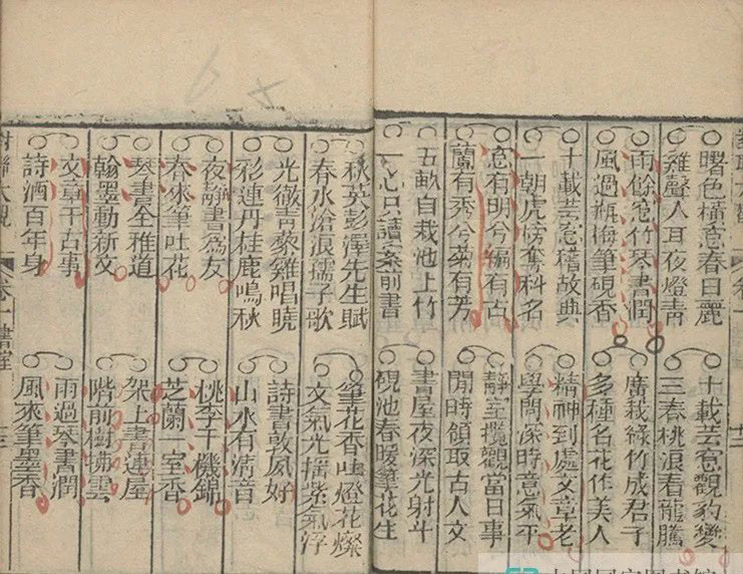 曙色橫窓春日麗
雞聲人耳夜燈青
雨餘窓竹琴書潤
風過瓶海筆硯香
十載芸窓稽故典
一朝虎榜奪科名
窓有明兮編有古
蘭有秀兮菊有芳
五畝自栽池上竹
一心只讀案前書
十載芸窓觀豹變
三春桃浪看龍騰
廣栽綠竹成君子
多種名花作美人
精神到處文章老
學問深時意氣平
靜至攬觀當日事
閒時領取古人文
書屋夜深光射斗
硯池春暖筆花生
秋英彭澤先生賦
春水滄浪孺子歌
光徹青藜雞唱曉
彩連丹桂鹿鳴秋
夜靜書爲友
春來筆吐花
琴書全雅道
翰墨動新文
文章千古事
詩酒百年身
筆花香吐燈花燦
文氣光搖紫氣浮
詩書敦夙好
山水有清音
桃李千機錦
芝蘭一室香
架上書連屋
階前樹拂雲
雨過琴書潤
風來筆墨香
對聯大觀 卷一書室 十三